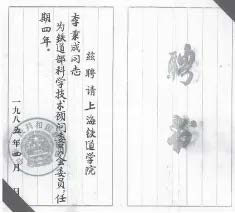 聘书
兹聘请上海铁道学院
李秉成同志
为铁道部科学技术顾问委员会委员,任
期四年。
一九八五年 月 日